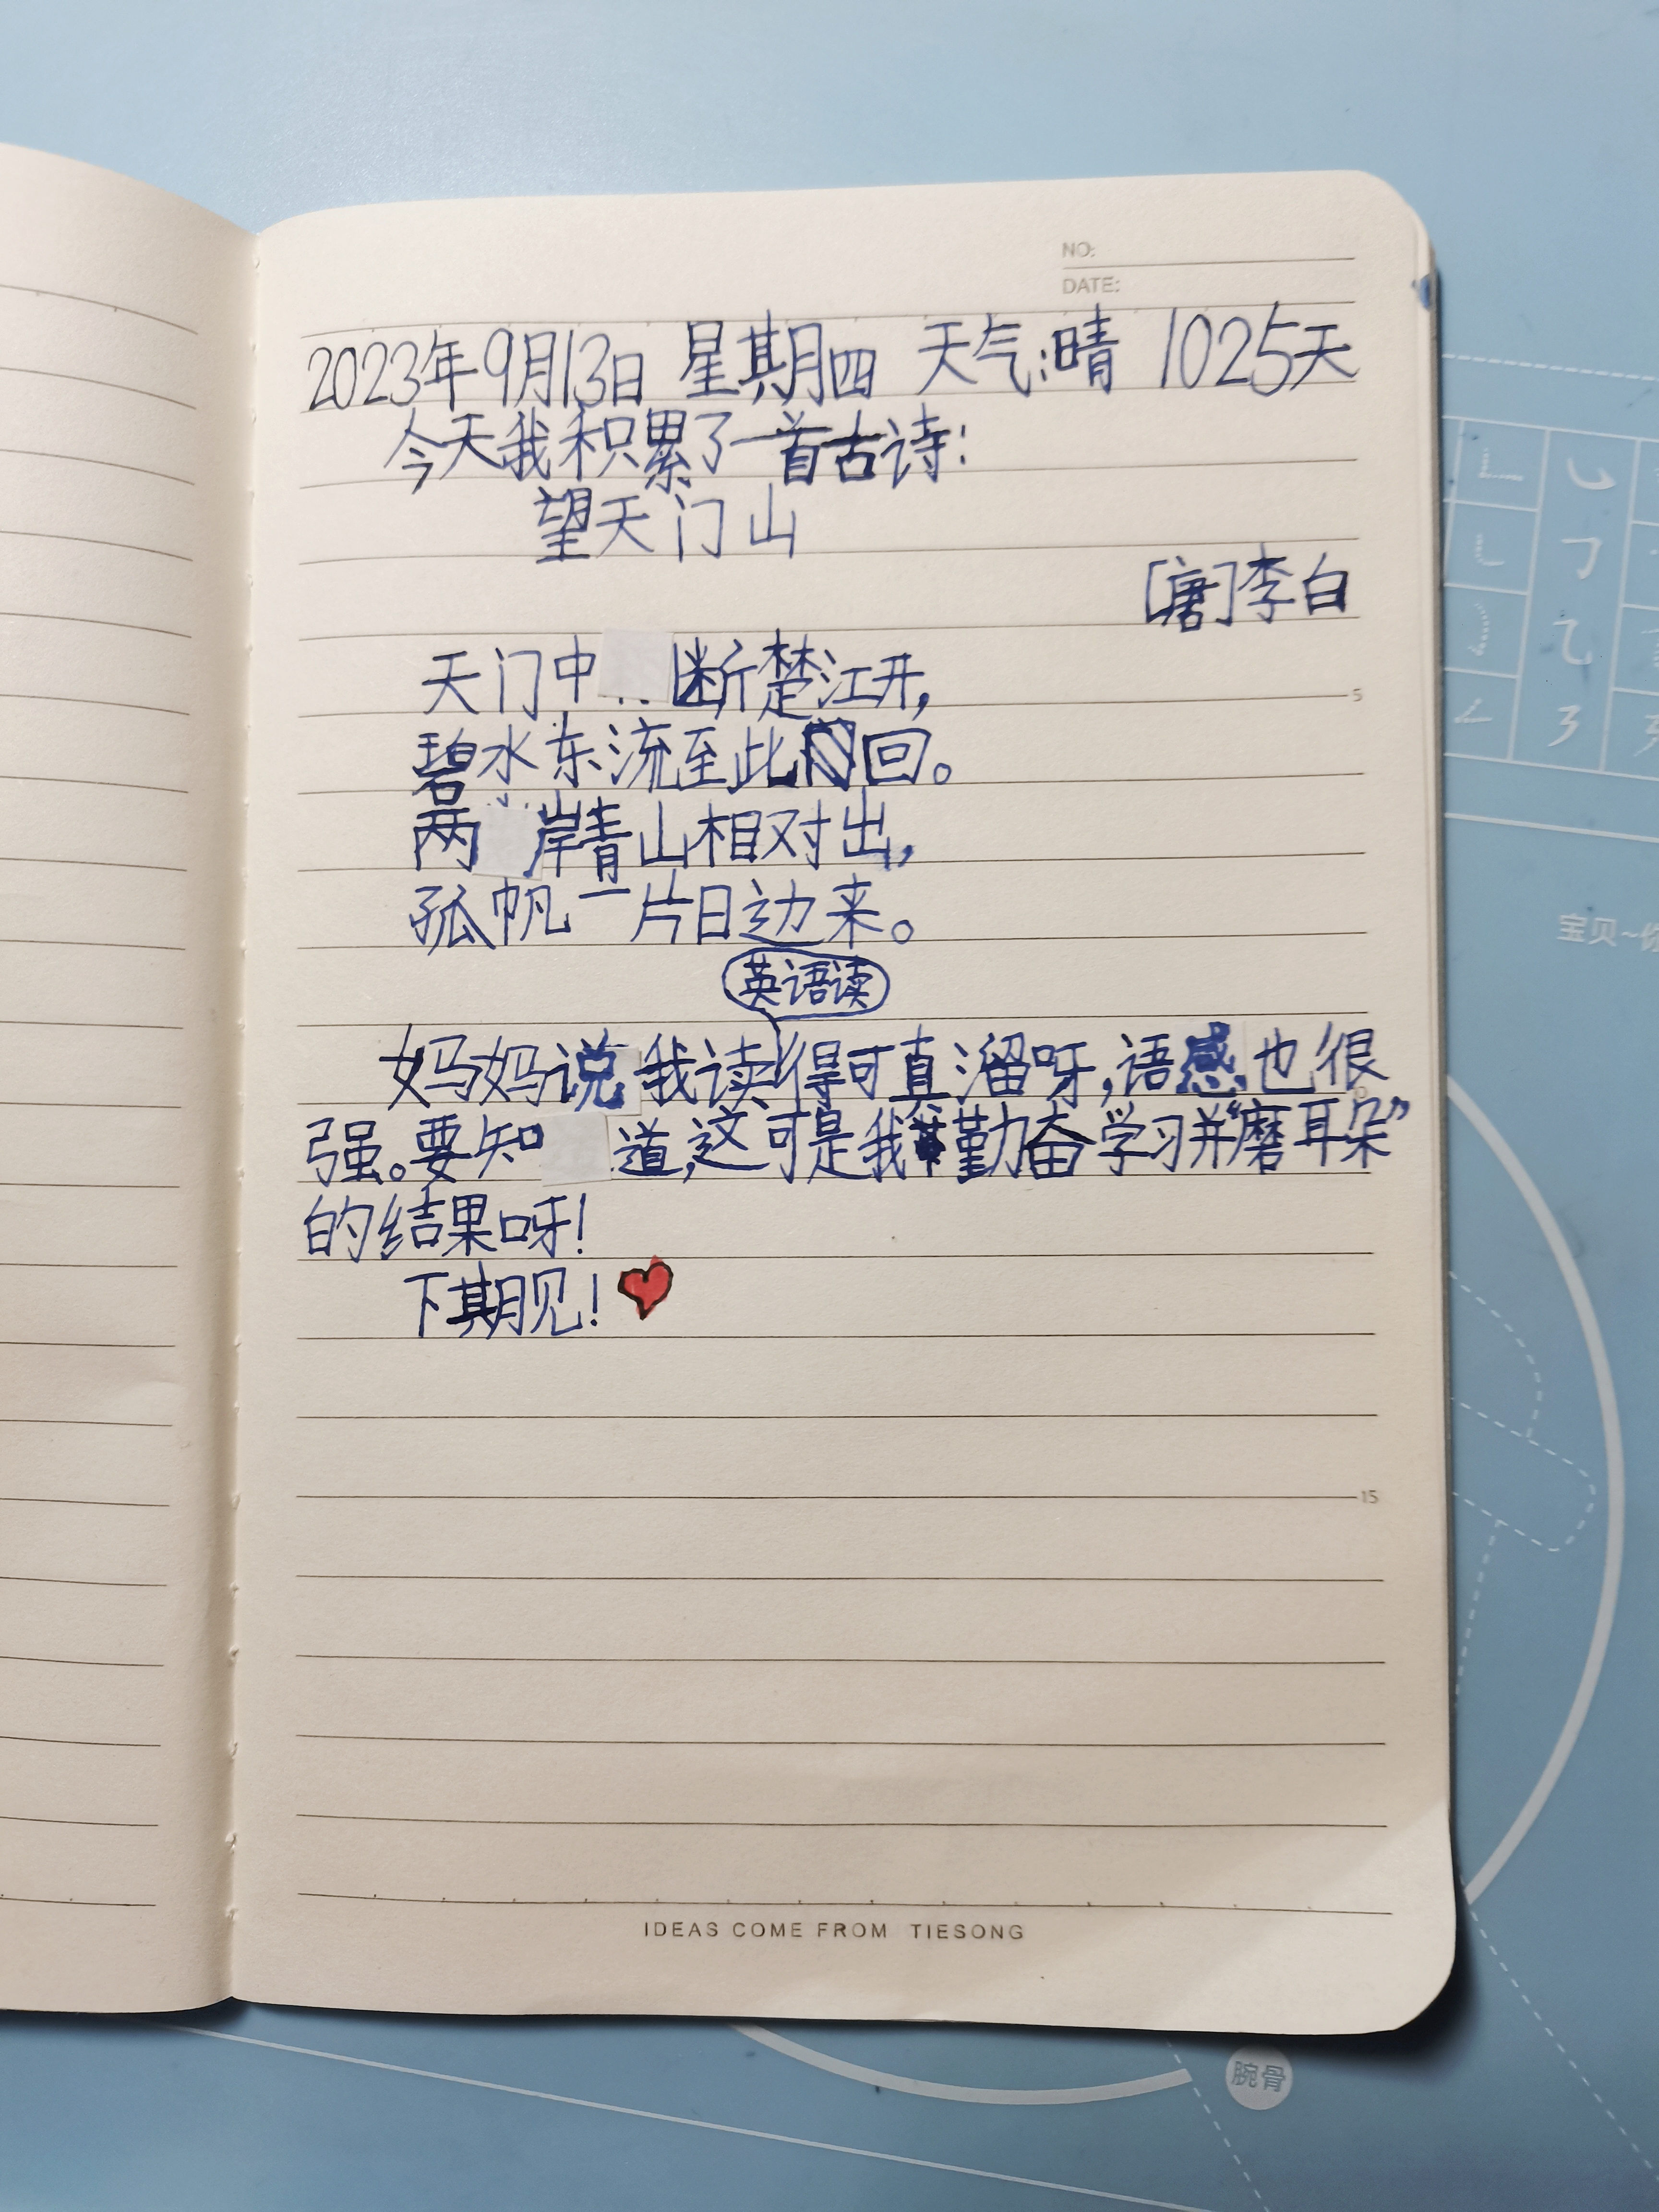 NO:
DATE:
2023年9月13日 星期四 天气:晴 1025天
今天我积累了一首古诗:
望天门山
[唐]李白
天门中断楚江开,
5
碧水东流至此回。
两岸青山相对出,
孤帆一片日边来。
宝贝~
英语读
妈妈说我读得可真溜呀,语感也很
强。要知道,这可是我勤奋学习并“磨耳朵”
的结果呀!
下期见!
15
IDEAS COME FROM TIESONG
腕骨